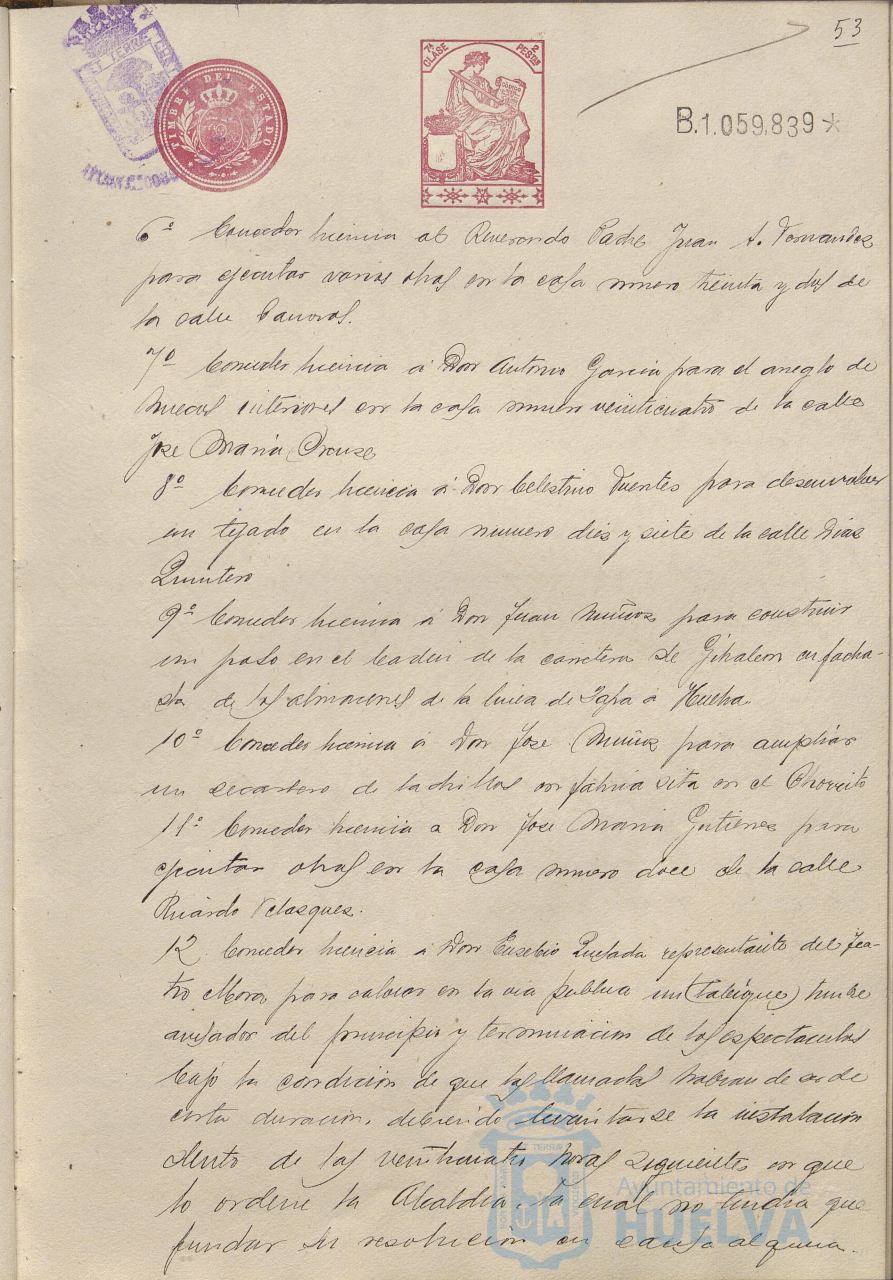 53
TIMBRE DEL ESTADO
7ª CLASE 2 PESTAS
B.1.059,839*
6º Conceder licencia al Reverendo Padre Juan A. Fernandez
para ejecutar varias obras en la casa numero treinta y dos de
la calle
7º Conceder licencia á Don Antonio Garcia para el arreglo de
interiores en la casa numero veinticuatro de la calle
Jose Maria
8º Conceder licencia á Don Celestino Fuentes para
un tejado en la casa numero diez y siete de la calle Dias
Quintero
9º Conceder licencia á Don Juan Muñoz para construir
un paso en el de la carretera de Gibraleon en facha-
da de los almacenes de la linea de Zafra a Huelva.
10º Conceder licencia á Don Jose Muñoz para ampliar
un secadero de ladrillos en fabrica sita en el Chorrito
11º Conceder licencia a Don Jose Maria Gutierres para
ejecutar obras en la casa numero doce de la calle
Ricardo Velasques.
12. Conceder licencia á Don Eusebio Quesada representante del Tea-
tro Mora para colocar en la via publica un (tabique) timbre
avisador del principio y terminacion de los espectaculos
bajo la condicion de que las llamadas habran de ser de
corta duracion, debiendo levantarse la instalacion
dento de las veinticuatro horas siguientes en que
lo ordene la Alcaldia, la cual no tendra que
fundar su resolucion en causa alguna.
Ayuntamiento de
HUELVA